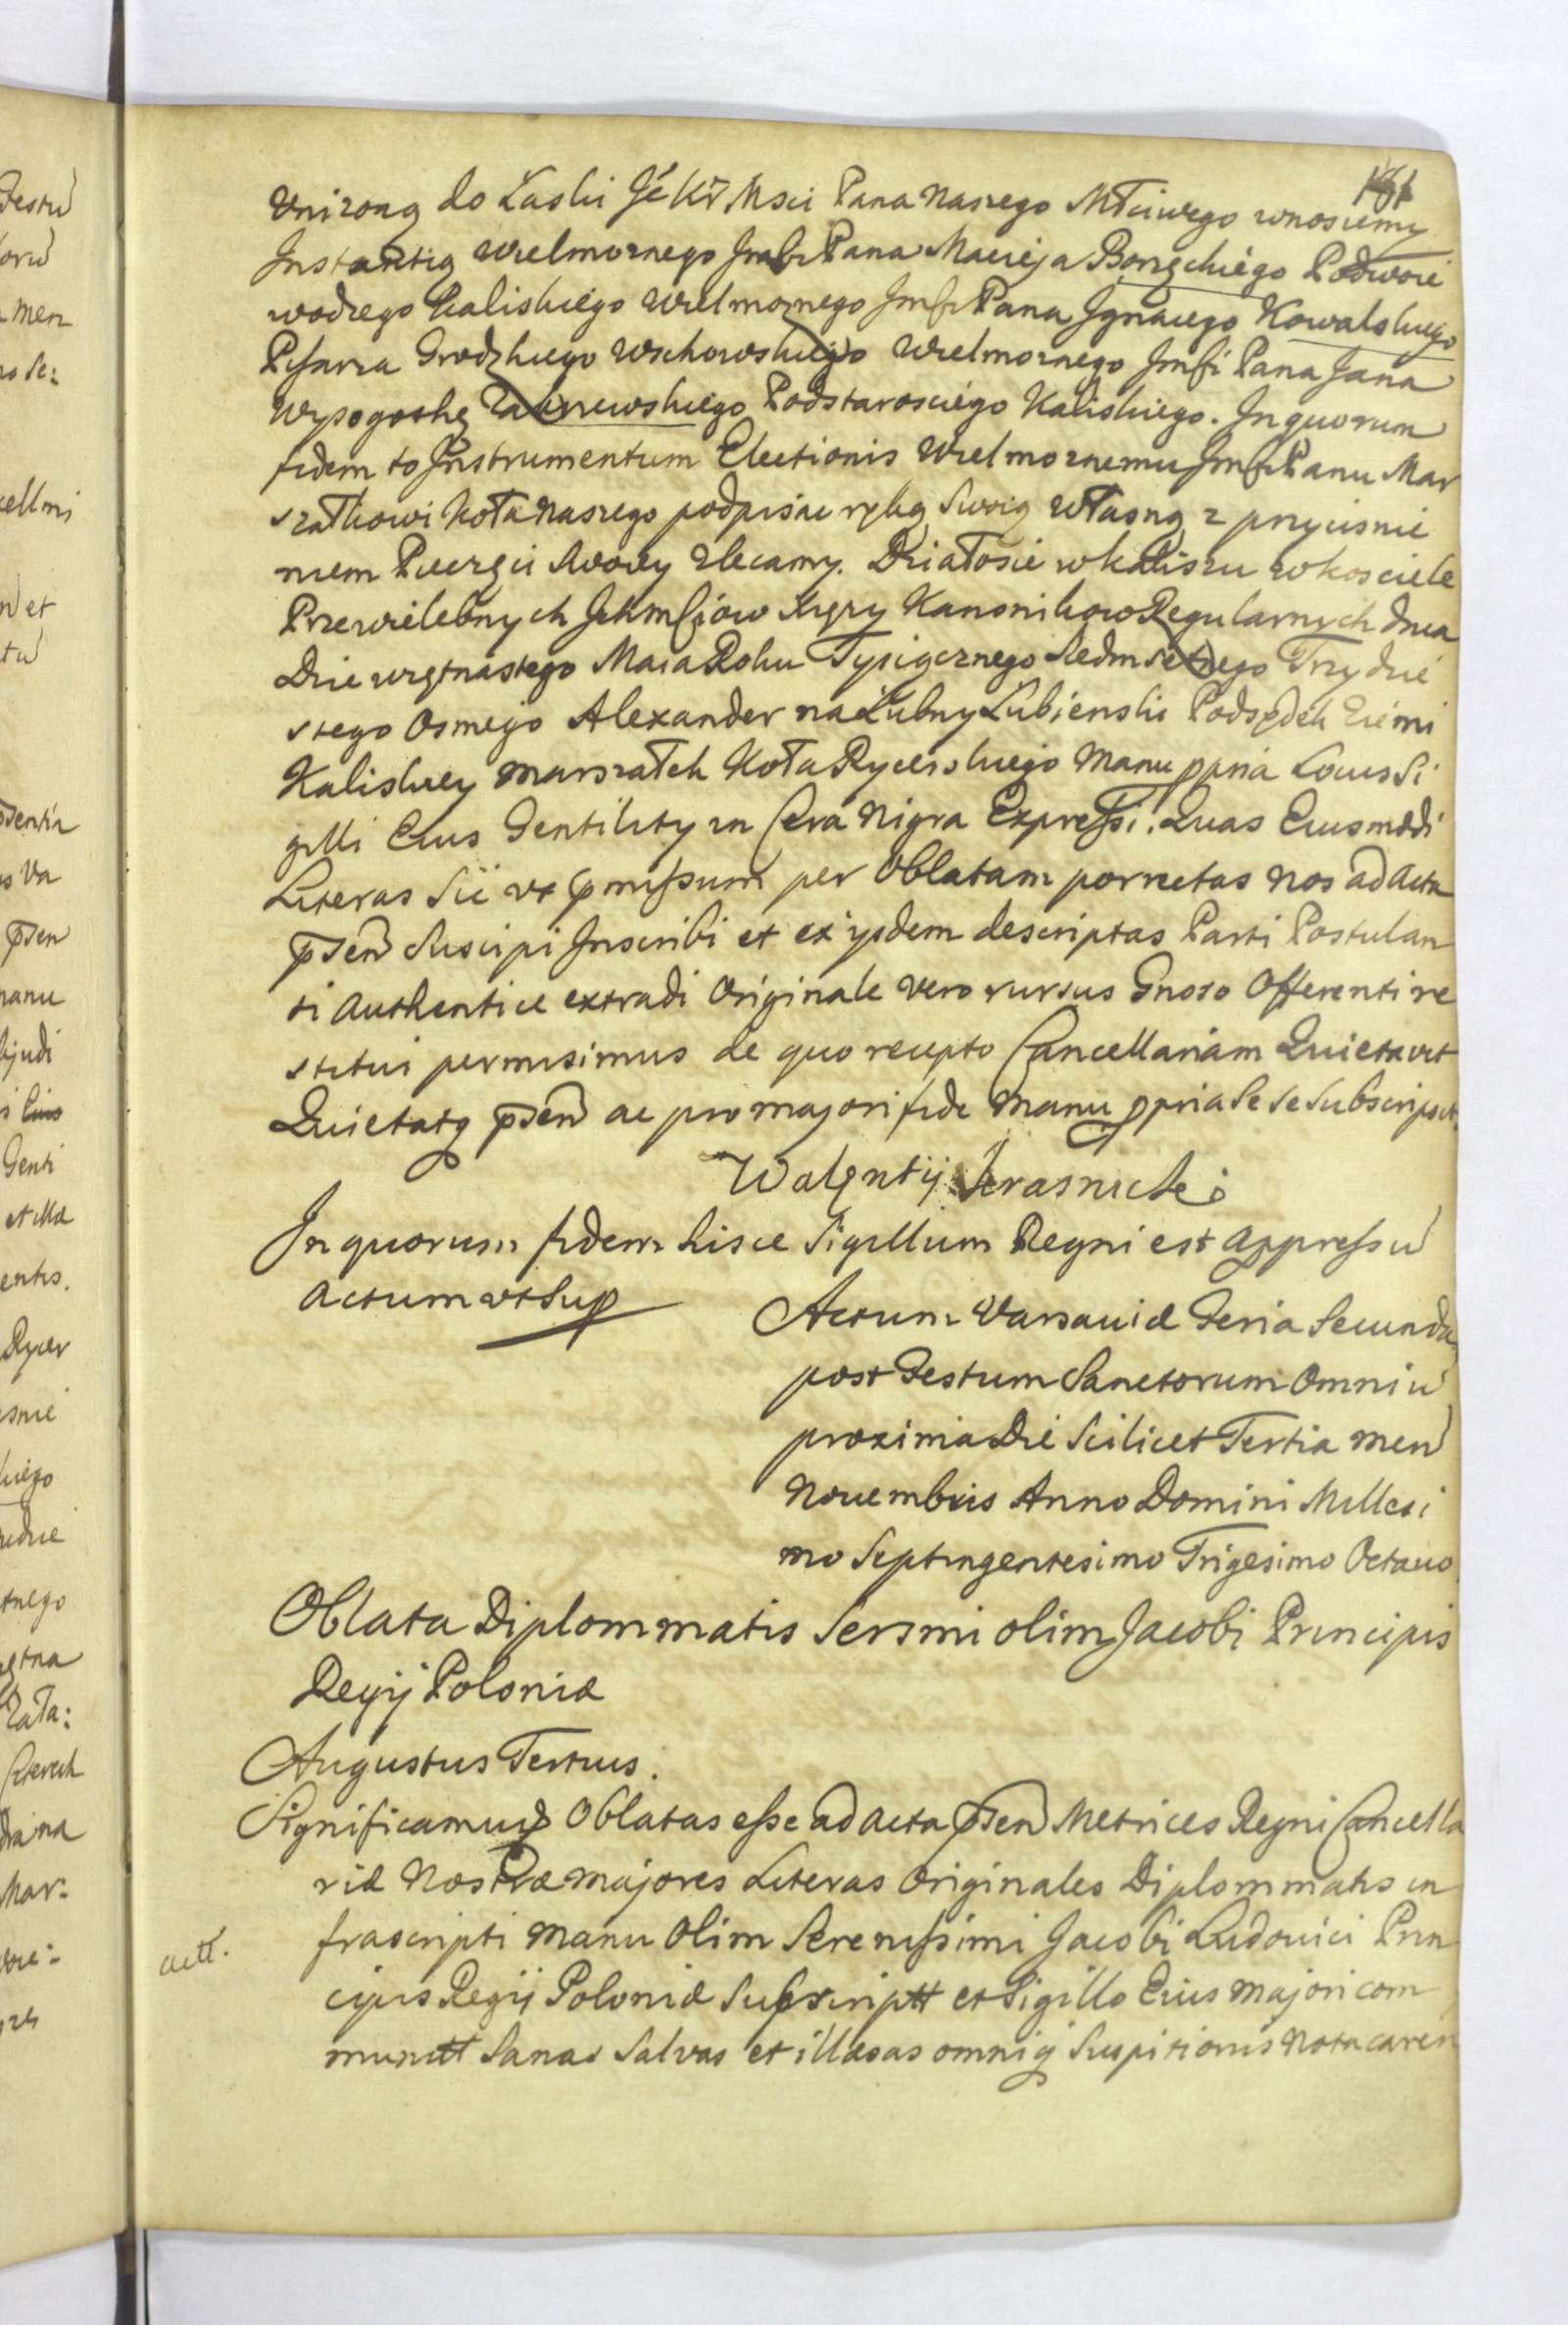 Unizoną do Łaski Jé Kr̃ Msci Pana Naszego Mściwego wnosiemy
Instantią Wielmoznego Jmśi Pana Macieja Bonęckiégo Podwoie
wodzego Kaliskiégo Wielmoznego Jmśi Pana Jgnacego Kowalskiego
Pisarza Grodzkiego Wschowskiego Wielmoznego Jmśi Pana Jana
Wysogotkę Zakrzewskiego Podstarosciégo Kaliskiego. In quorum
fidem to Jnstrumentum Electionis Wielmoznemu Jmśi Panu Mar
szałkowi Koła Naszego podpisać ręką Swoią Własną z przycisnie
niem Pieczęci Swoiey zlecamy. Działosie w Kaliszu w Kosciele
Przewielebnych Jchmśćiow Xięzy Kanonikow Regularnych dnia
Dziewiętnastego Maia Roku Tysiącznego Siedmsetnego Trzydzie
stego Osmego Alexander na Łubny Łubienski Podsędek Ziémi
Kaliskiey Marszałek Koła Rycerskiego Manu ppria Locus Si
gilli Eius Gentility in Cera Nigra Expressi. Quas Eiusmodi
Literas Sic ut pmissum per Oblatam porrectas Nos ad Acta
pñsen Suscipi Jnscribi et ex ijsdem descriptas Parti Postulan
ti Authentice extradi Originale vero rursus Gnoso Offerenti re
stitui permisimus de quo recepto Cancellariam Quietavit
Quietatq pñsen ac pro majori fide Manu ppria Se se Subscripsit.
Walęntij Krasnicki
In quorum fidem hisce Sigillum Regni est appressū
Actum ut Sup
Actum Varsaviæ Feria Secunda
post Festum Sanctorum Omniū
proxima Die Scilicet Tertia men
Novembris Anno Domini Millesi
mo Septingentesimo Trigesimo Octavo
Oblata Diplommatis Sersmi olim Jacobi Principis
Regij Poloniæ
Augustus Tertius.
Significamus Oblatas esse ad Acta pñsen Metrices Regni Cancella
riæ Nostræ majores Literas Originales Diplommatis in
frascripti manu Olim Serenissimi Jacobi Ludovici Prin
cipis Regij Poloniæ Subscriptt et Sigillo Eius majori com
munitt Sanas Salvas et illæsas omniq Suspitionis Nota caren